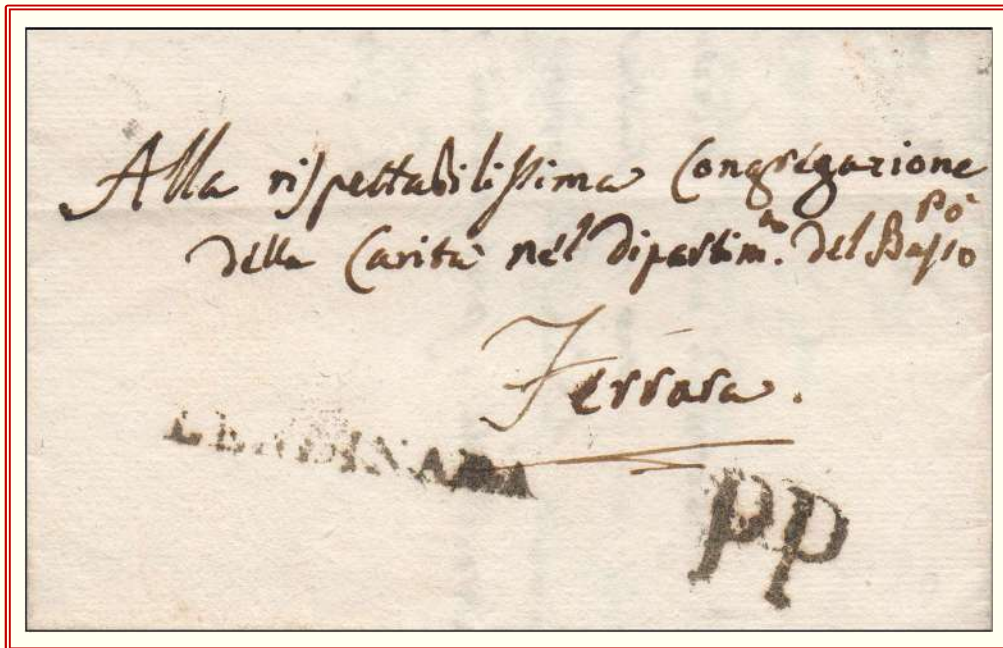 Alla rispettabilissima Congregazione
della Carità nel dipartim.to del Basso Pò
Ferrara.
LENDINARA
PP